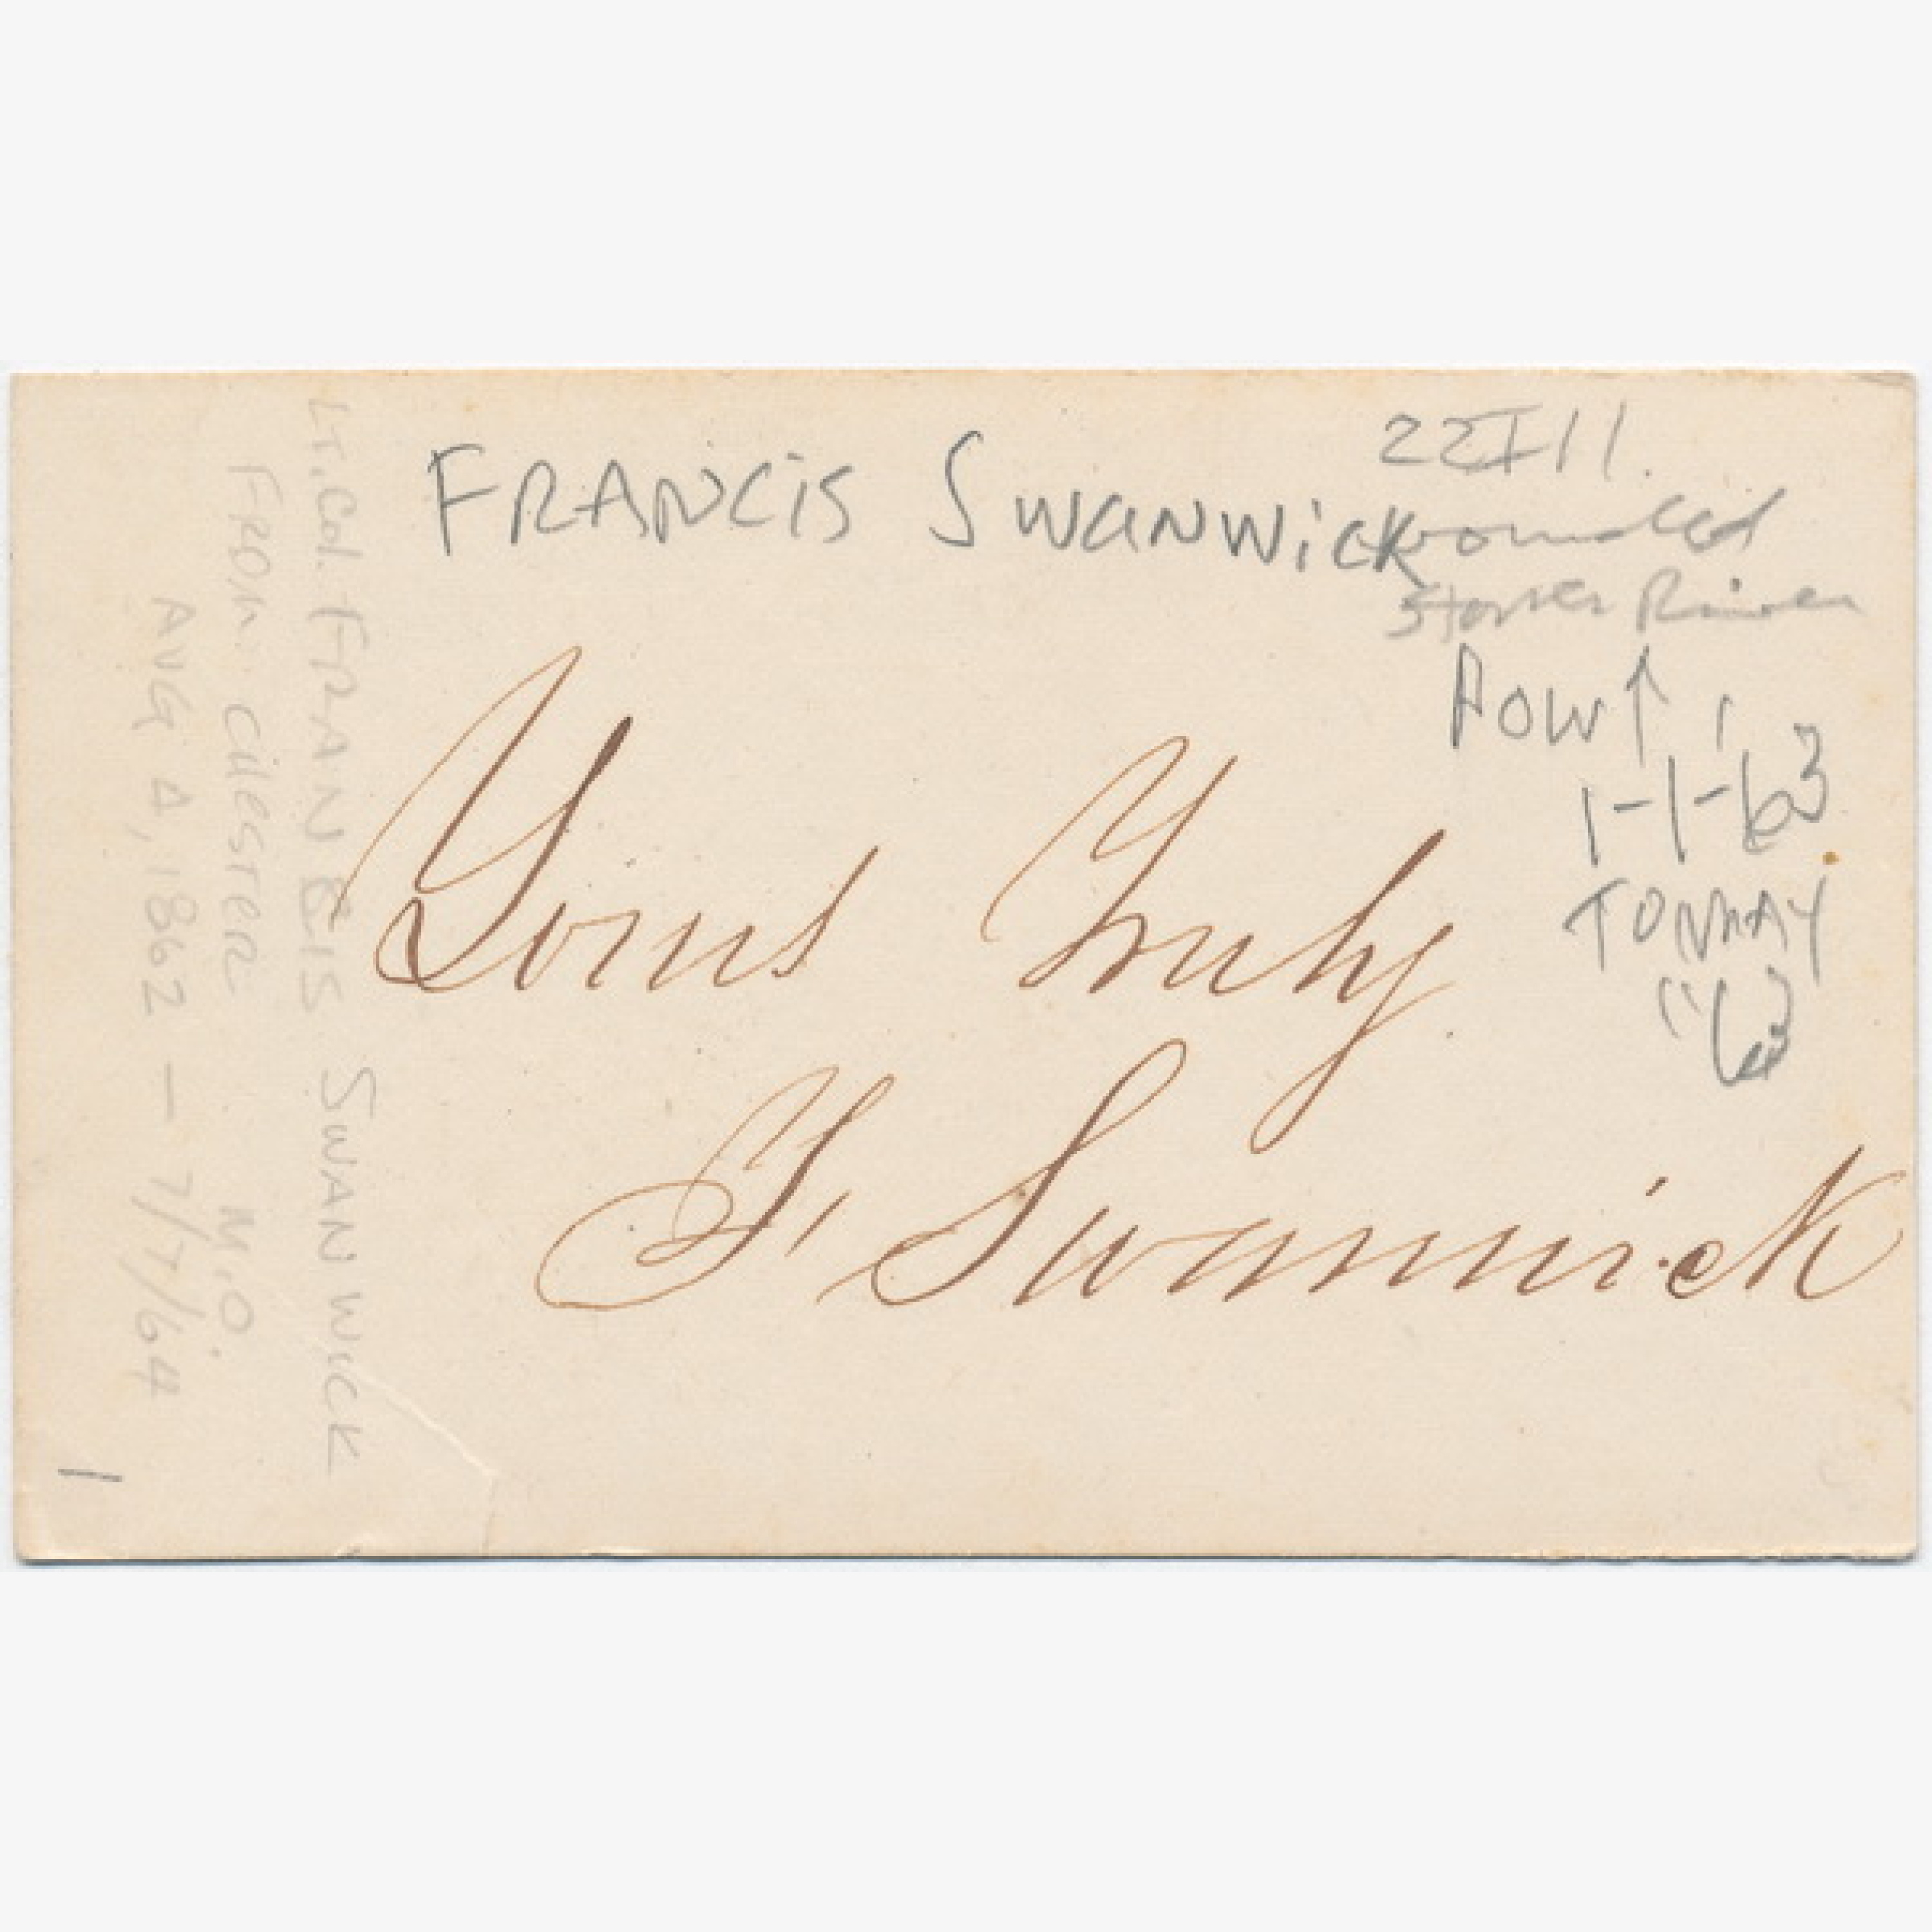 FRANCIS SWANWICK
22 Ill.
wounded
Stones River
POW ↑
1-1-'63
TO MAY
"63
Yours Truly
F. Swanwick
Lt. Col. FRANCIS SWANWICK
FROM CHESTER M.O.
AUG 4, 1862 — 7/7/64